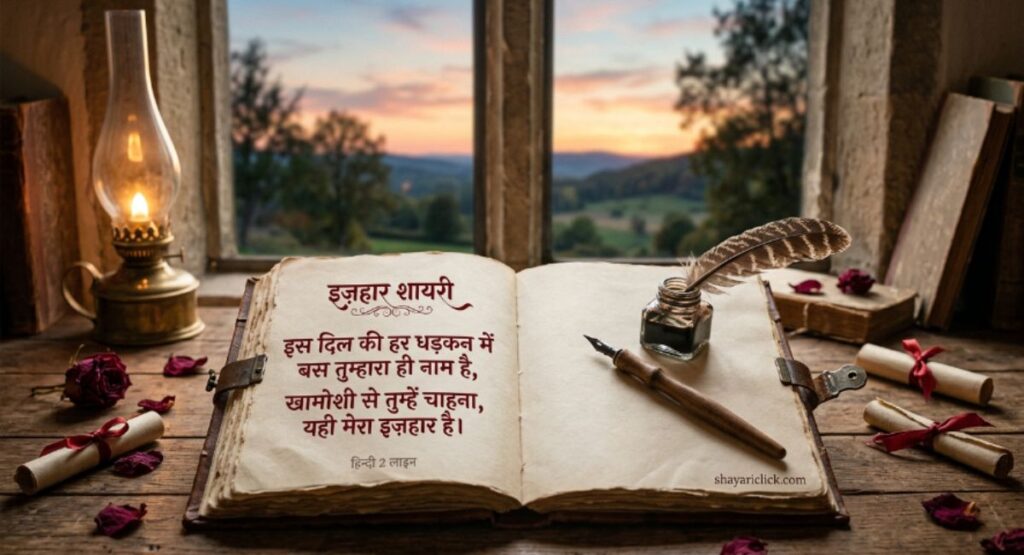 इज़हार शायरी
इस दिल की हर धड़कन में
बस तुम्हारा ही नाम है,
खामोशी से तुम्हें चाहना,
यही मेरा इज़हार है।
हिन्दी 2 लाइन
shayariclick.com